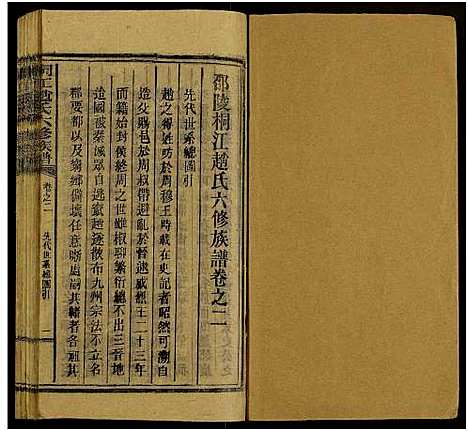 邵陵桐江趙氏六修族譜卷之二
先代世系總圖引
趙之得姓昉於周穆王時載在史記者昭然可溯自
造父賜邑於周叔帶避亂於晉逮威烈王二十三年
而籍始封侯終周之世雖椒聊繁衍總不出三晉地
造國被秦滅眾自逃竄越逐散布九州宗法不立名
郡要以及窮鄉僻壤任意斷處嗣其緒者各祖其
桐江趙氏六修族譜
卷之二
先代世系總圖引
一